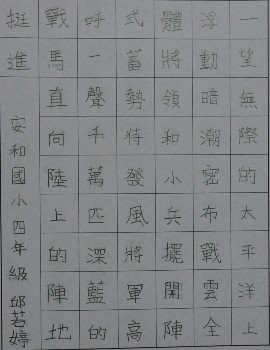 一望無際的太平洋上
浮動暗潮密布戰雲全
體將領和小兵擺開陣
式蓄勢待發風將軍高
呼一聲千萬匹深藍的
戰馬直向陸上的陣地
挺進
安和國小四年級 邱若婷